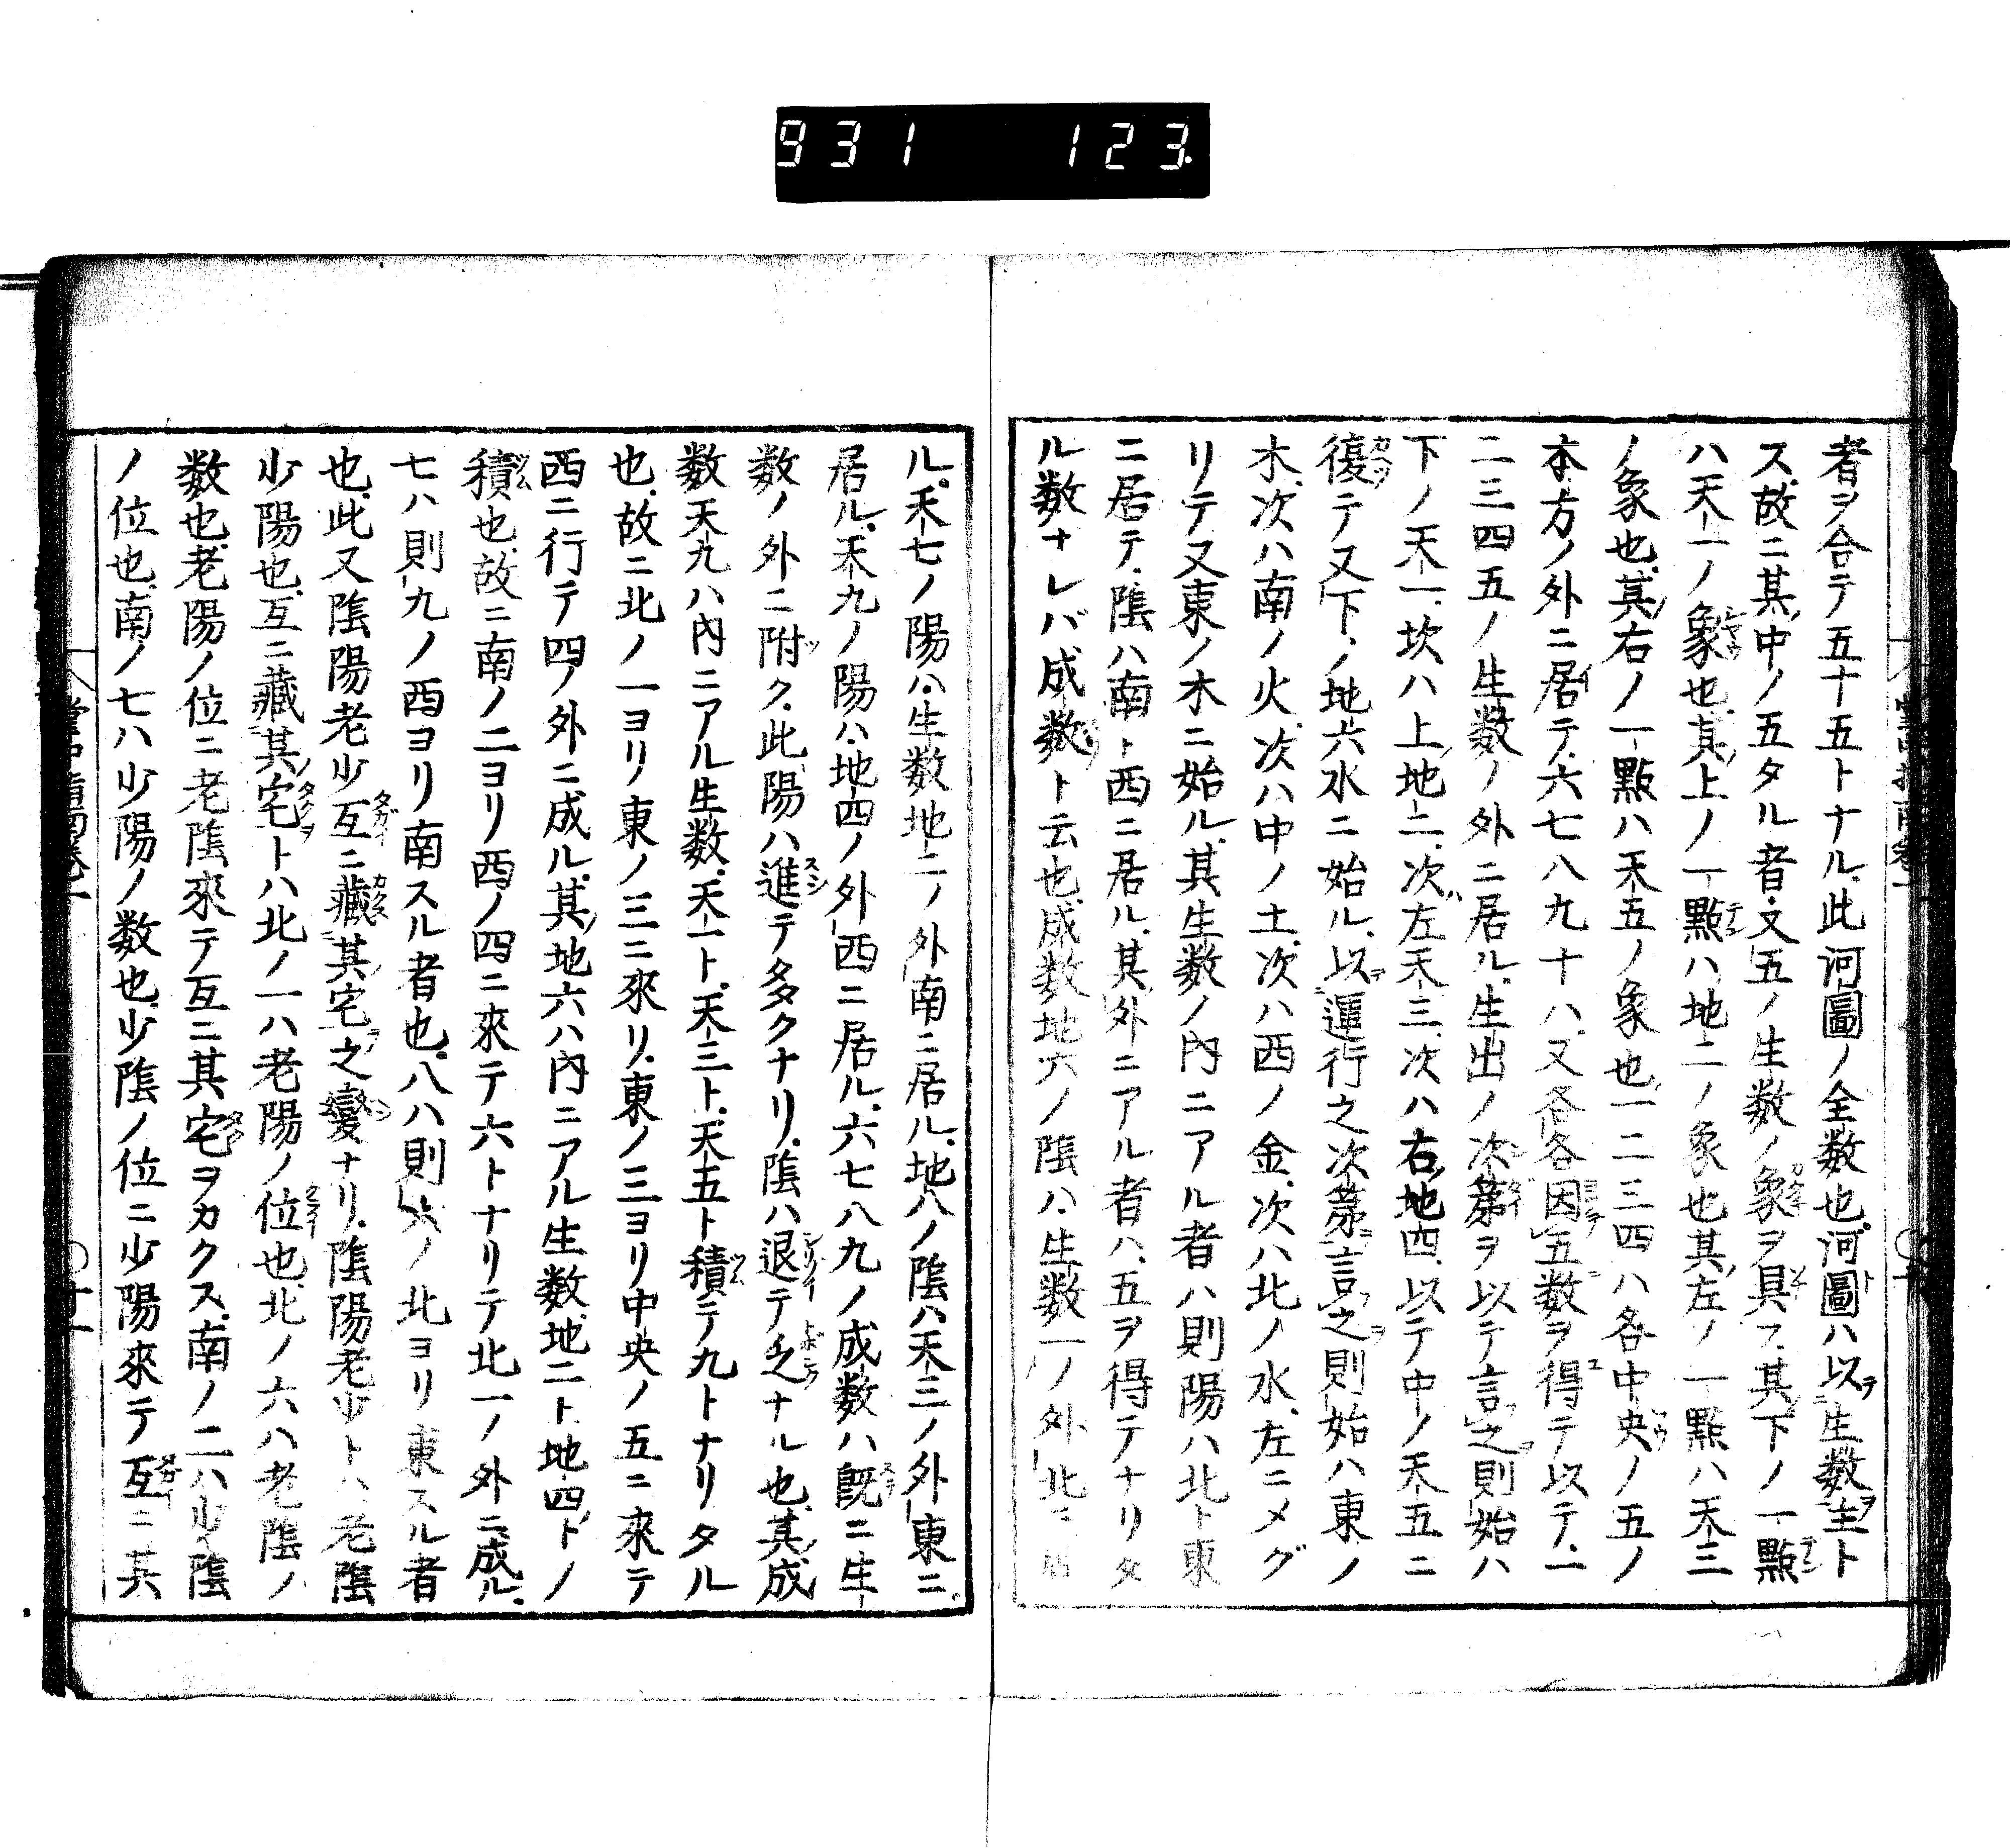 931 123
者ヲ合テ五十五トナル、此河圖ノ全数也、河圖ハ以テ生数ヲ主ト
ス、故ニ其中ノ五タル者、又五ノ生数ノ象ヲ具フ、其下ノ一點
ハ天一ノ象也、其上ノ一點ハ地二ノ象也、其左ノ一點ハ天三
ノ象也、其右ノ一點ハ天五ノ象也、一二三四ハ各中央ノ五ノ
本方ノ外ニ居テ、六七八九十ハ、又各各因五数ヲ得テ以テ、一
二三四五ノ生数ノ外ニ居ル、生出ノ次第ヲ以テ言之則始ハ
下ノ天一、坎ハ上地二、次左天三、次ハ右地四、以テ中ノ天五ニ
復テ又下ノ地六水ニ始ル、以運行之次第言之則始ハ東ノ
木、次ハ南ノ火、次ハ中ノ土、次ハ西ノ金、次ハ北ノ水、左ニメグ
リテ又東ノ木ニ始ル、其生数ノ内ニアル者ハ則陽ハ北ト東
ニ居テ、陰ハ南ト西ニ居ル、其外ニアル者ハ、五ヲ得テナリタ
ル数ナレバ、成数ト云也、成数地六ノ陰ハ、生数一ノ外北ニ居
ル、天七ノ陽ハ、生数地二ノ外南ニ居ル、地八ノ陰ハ、天三ノ外東ニ
居ル、天九ノ陽ハ、地四ノ外西ニ居ル、六七八九ノ成数ハ既ニ生
数ノ外ニ附ク、此陽ハ進テ多クナリ、陰ハ退テ乏ナル也、其成
数天九ハ内ニアル生数、天一ト、天三ト、天五ト積テ九トナリタル
也、故ニ北ノ一ヨリ東ノ三ニ來リ、東ノ三ヨリ中央ノ五ニ來テ
西ニ行テ四ノ外ニ成ル、其地六ハ内ニアル生数、地二ト、地四トノ
積也、故ニ南ノ二ヨリ西ノ四ニ來テ六トナリテ北一ノ外ニ成ル、
七ハ則九ノ西ヨリ南スル者也、八ハ則六ノ北ヨリ東スル者
也、此又陰陽老少互ニ藏其宅之變ナリ、陰陽老少トハ、老陰
少陽也、互ニ藏其宅トハ北ノ一ハ老陽ノ位也、北ノ六ハ老陰ノ
数也、老陽ノ位ニ老陰來テ互ニ其宅ヲカクス、南ノ二ハ少陰
ノ位也、南ノ七ハ少陽ノ数也、少陰ノ位ニ少陽來テ互ニ其